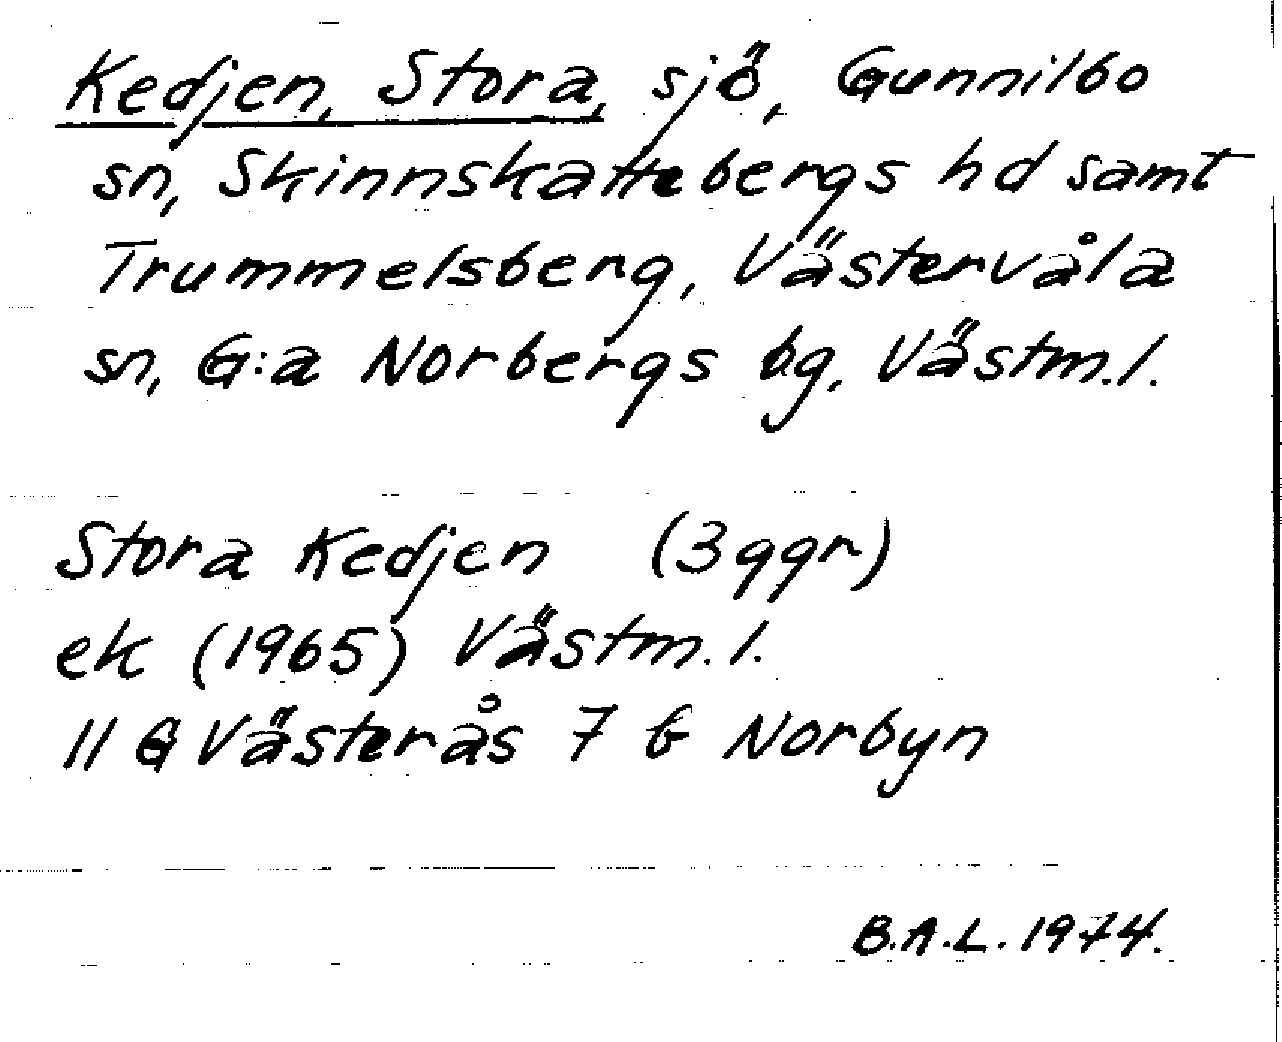 Kedjen, Stora, sjö, Gunnilbo
sn, Skinnskattebergs hd samt
Trummelsberg, Västervåla
sn, G:a Norbergs bg, Västm.l.
Stora Kedjen (3 ggr)
ek (1965) Västm.l.
11 G Västerås 7 b Norbyn
B.A.L. 1974.